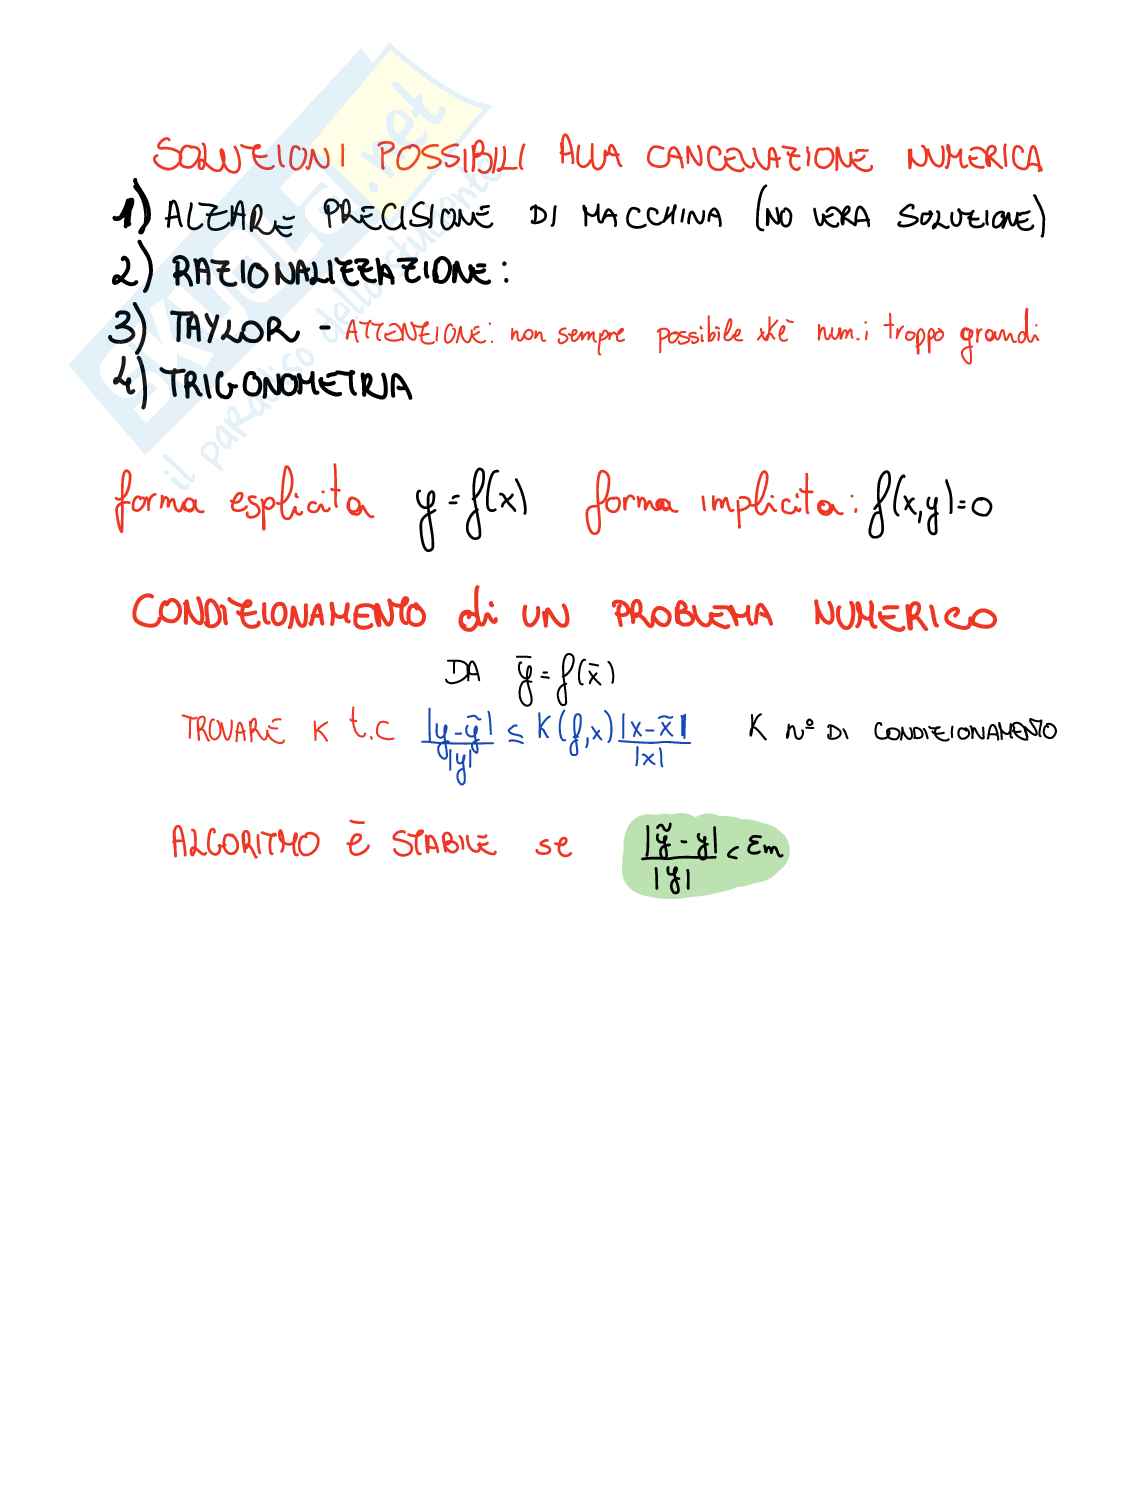 SOLUZIONI POSSIBILI ALLA CANCELLAZIONE NUMERICA
1) ALZARE PRECISIONE DI MACCHINA (NO VERA SOLUZIONE)
2) RAZIONALIZZAZIONE:
3) TAYLOR - ATTENZIONE: non sempre possibile xkè num.i troppo grandi
4) TRIGONOMETRIA
forma esplicita y = f(x) forma implicita: f(x,y)=0
CONDIZIONAMENTO di UN PROBLEMA NUMERICO
DA ȳ = f(x̄)
TROVARE K t.c |y-ỹ|/|y| ≤ K(f,x) |x-x̃|/|x| K n° DI CONDIZIONAMENTO
ALGORITMO È STABILE se |ỹ-y|/|y| < εm
SKUOLA.net
il paradiso dello studente